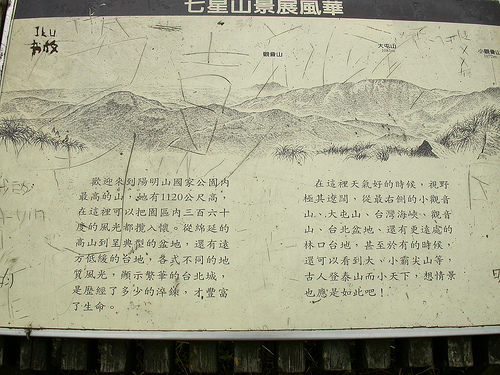 七星山景展風華
觀音山
大屯山
小觀音山
歡迎來到陽明山國家公園內
最高的山，她有1120公尺高，
在這裡可以把園區內三百六十
度的風光都攬入懷。從綿延的
高山到呈典型的盆地，還有遠
方低緩的台地，各式不同的地
質風光，顯示繁華的台北城，
是歷經了多少的淬鍊，才豐富
了生命。
在這裡天氣好的時候，視野
極其遼闊，從最右側的小觀音
山、大屯山、台灣海峽、觀音
山、台北盆地，還有更遠處的
林口台地，甚至於有的時候，
還可以看到大、小霸尖山等，
古人登泰山而小天下，想情景
也應是如此吧！